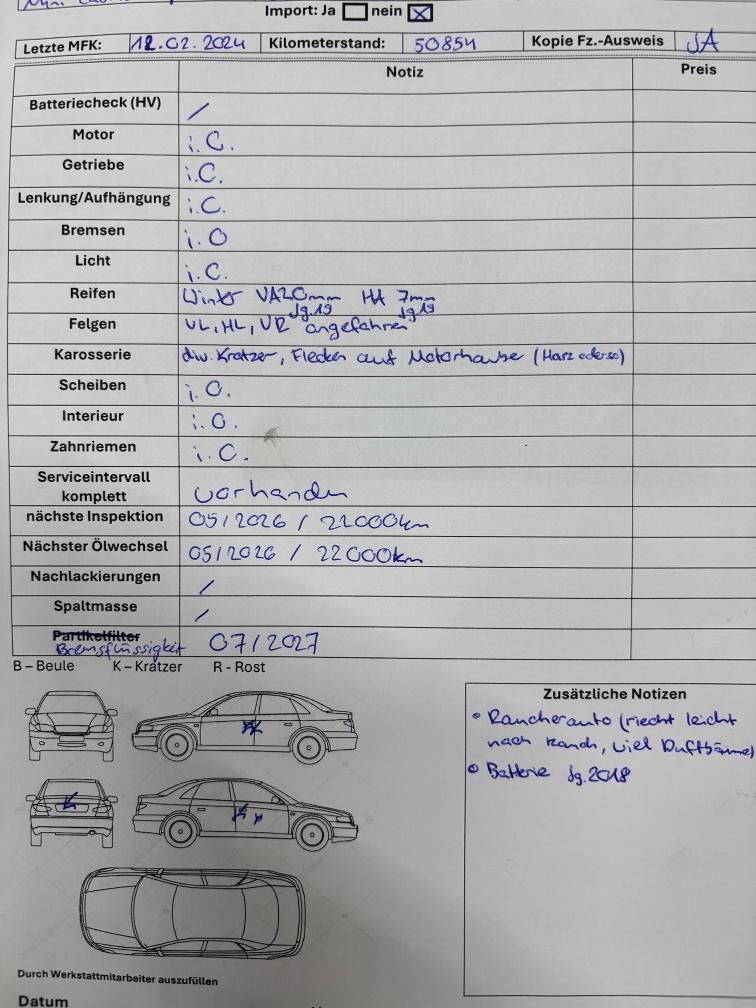 Import: Ja nein
Letzte MFK: 12.02.2024 Kilometerstand: 50854 Kopie Fz.-Ausweis JA
Notiz Preis
Batteriecheck (HV) /
Motor i.O.
Getriebe i.O.
Lenkung/Aufhängung i.O.
Bremsen i.O
Licht i.O.
Reifen Winter HA 7mm
Jg.19 Jg.19
Felgen VL, HL, VR angefahren
Karosserie div. Kratzer, Flecken auf Motorhaube (Harz oder so)
Scheiben i.O.
Interieur i.O.
Zahnriemen i.O.
Serviceintervall
komplett vorhanden
nächste Inspektion 05/2026 / 22000km
Nächster Ölwechsel 05/2026 / 22000km
Nachlackierungen /
Spaltmasse /
Partikelfilter
Bremsflüssigkeit 07/2027
B – Beule K – Kratzer R - Rost
Zusätzliche Notizen
• Raucherauto (riecht leicht
nach Rauch, viel Duftbäume)
• Batterie Jg.2018
Durch Werkstattmitarbeiter auszufüllen
Datum